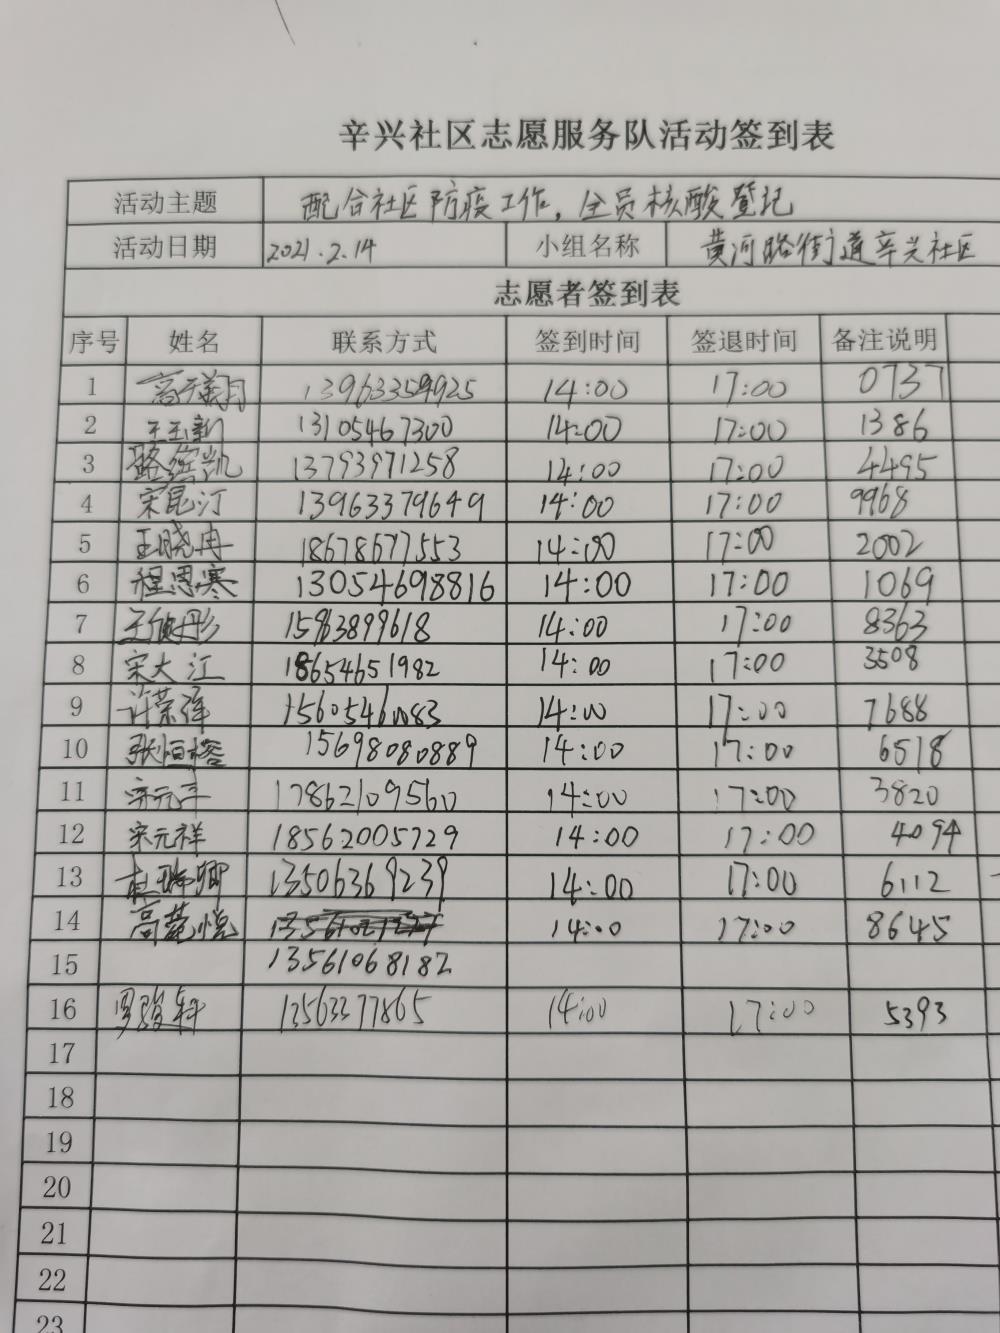 辛兴社区志愿服务队活动签到表
活动主题 配合社区防疫工作，全员核酸登记
活动日期 2021.2.14 小组名称 黄河路街道辛兴社区
志愿者签到表
序号 姓名 联系方式 签到时间 签退时间 备注说明
1 高天翔 13963354925 14:00 17:00 0737
2 王玉新 13105467300 14:00 17:00 1386
3 路综凯 13793971258 14:00 17:00 4495
4 宋昆汀 13963379649 14:00 17:00 9968
5 王晓冉 18678677553 14:00 17:00 2002
6 程思寒 13054698816 14:00 17:00 1069
7 14:00 17:00 8363
8 宋大江 18654651982 14:00 17:00 3508
9 许荣强 15605460083 14:00 17:00 7688
10 张恒榕 15698080889 14:00 17:00 6518
11 宋元平 17862109560 14:00 17:00 3820
12 宋元祥 18562005729 14:00 17:00 4094
13 杜瑞卿 13506369239 14:00 17:00 6112
14 高菀悦 14:00 17:00 8645
15 13561068182
16 罗骏轩 13563377865 14:00 17:00 5393
17
18
19
20
21
22
23